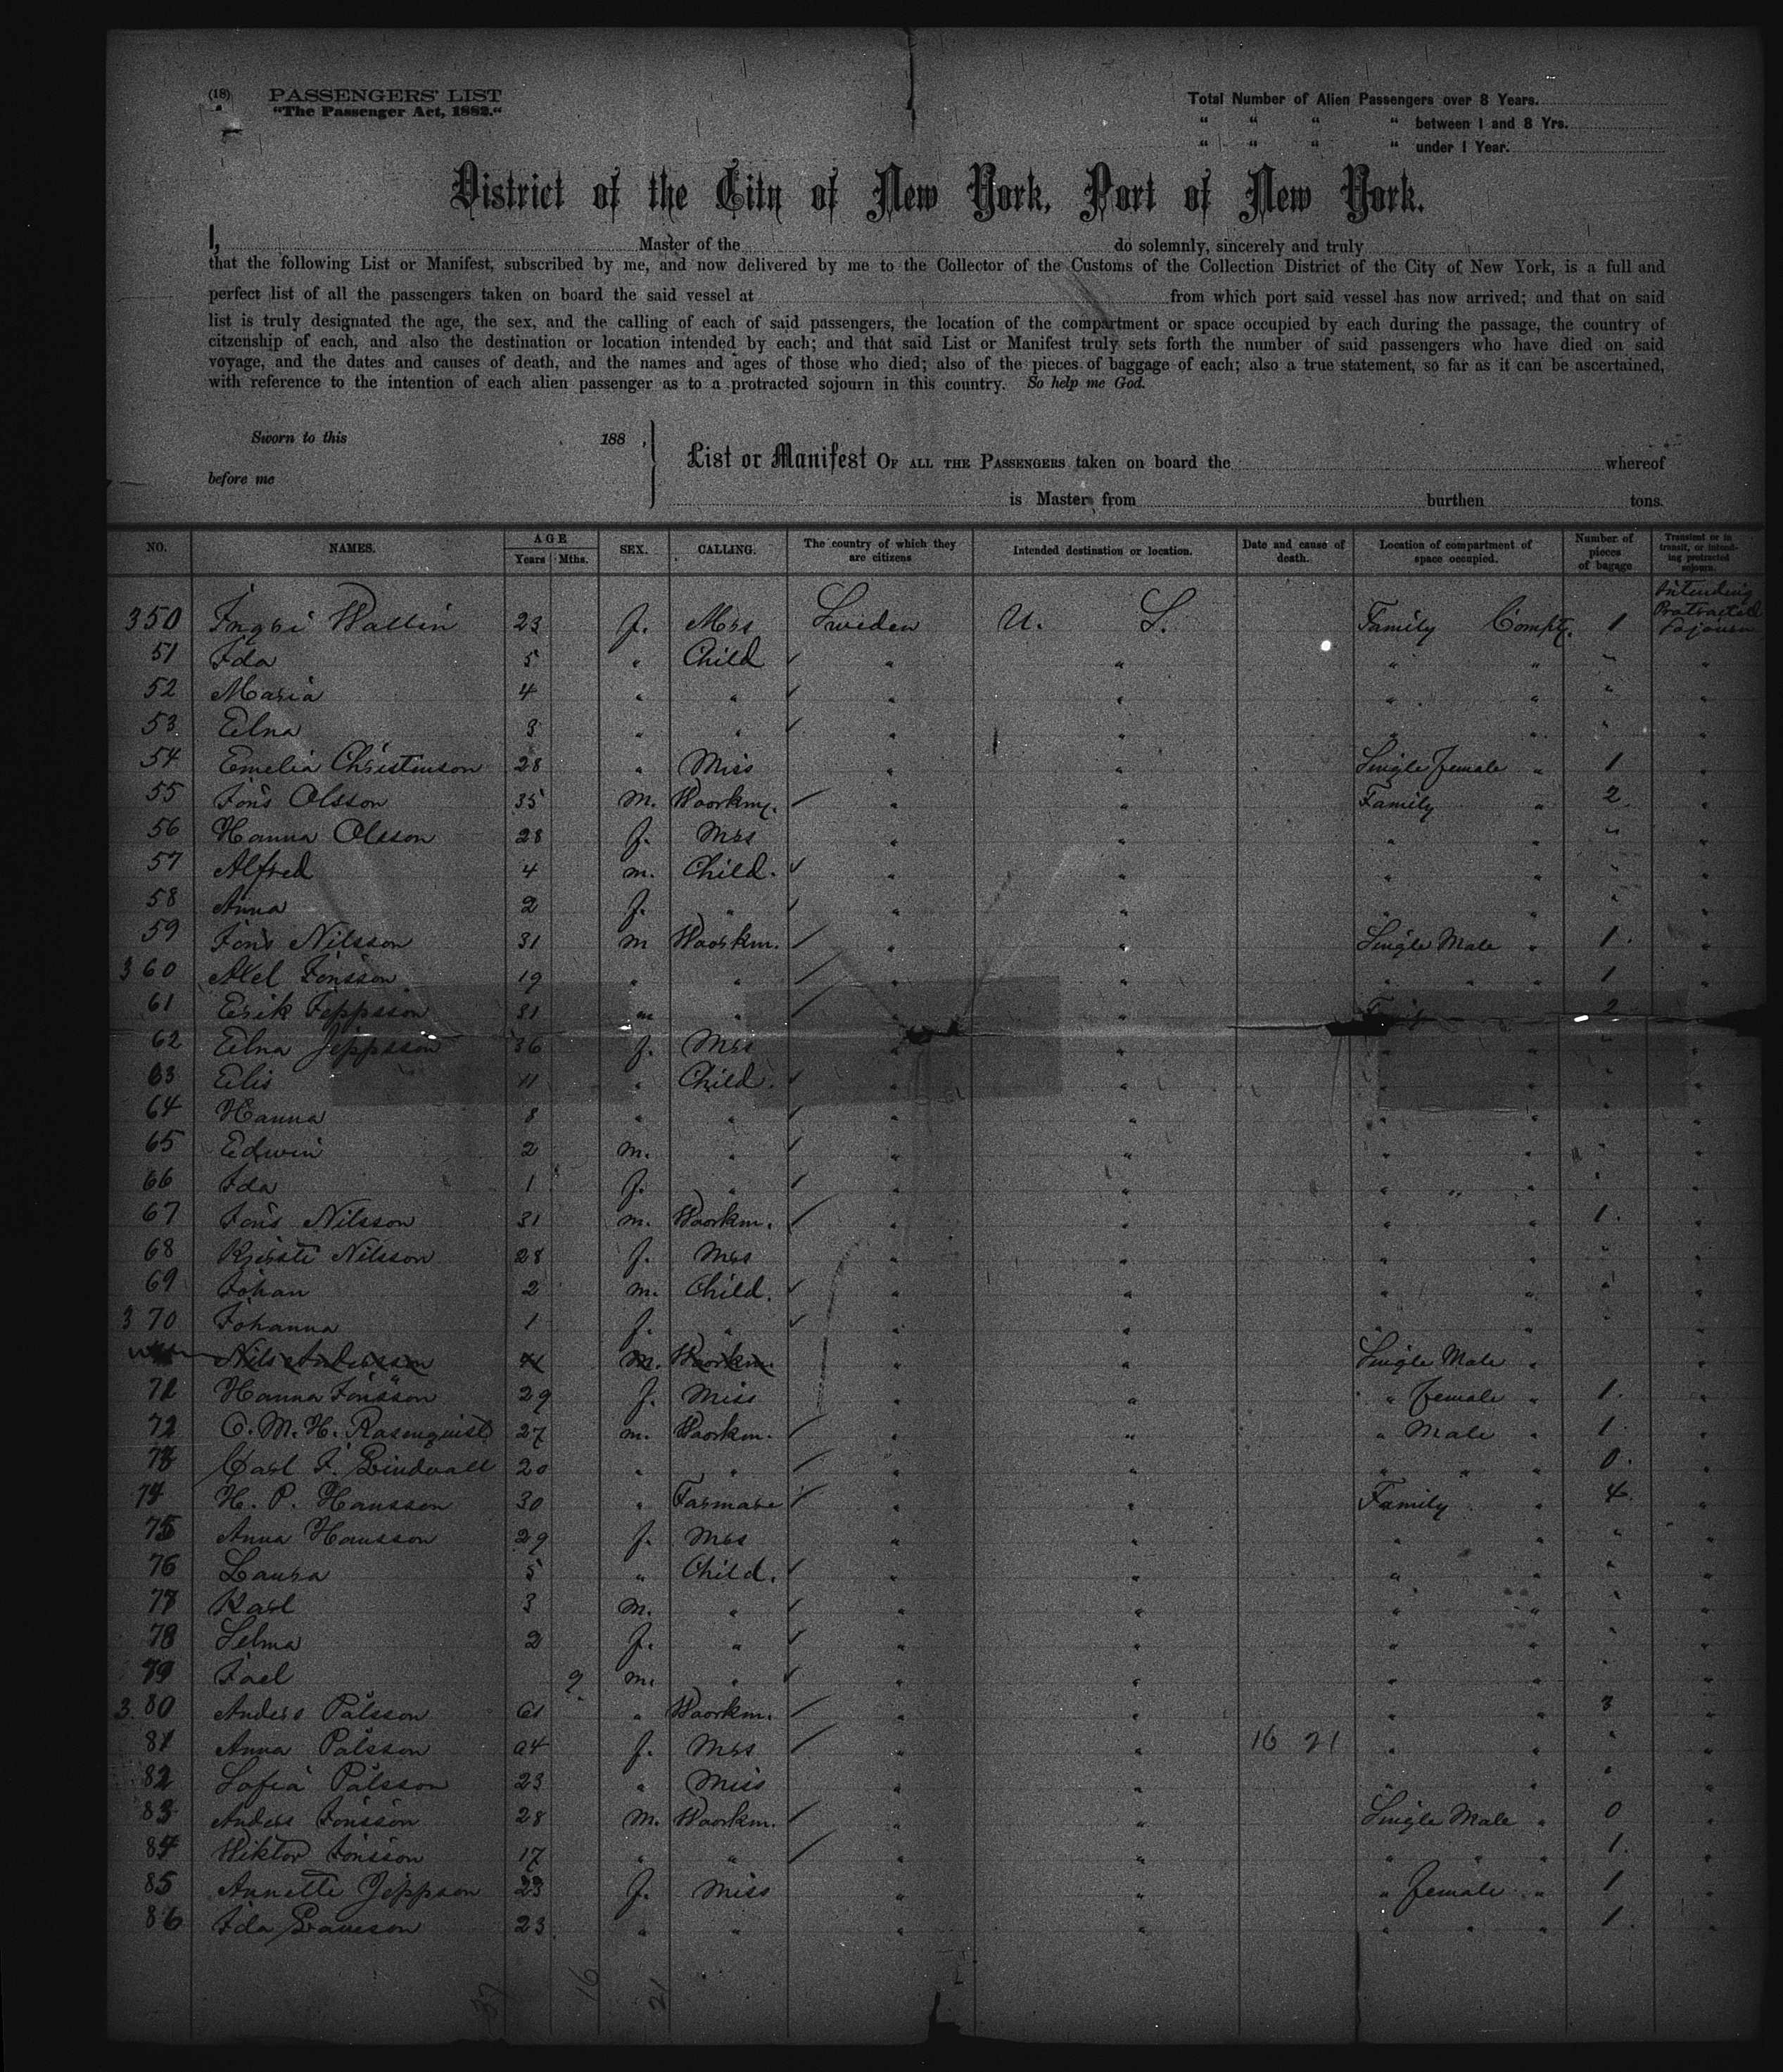 (18) PASSENGERS' LIST
"The Passenger Act, 1882."
Total Number of Alien Passengers over 8 Years.
" " " " between 1 and 8 Yrs.
" " " " under 1 Year.
District of the City of New York, Port of New York.
I, Master of the do solemnly, sincerely and truly
that the following List or Manifest, subscribed by me, and now delivered by me to the Collector of the Customs of the Collection District of the City of New York, is a full and
perfect list of all the passengers taken on board the said vessel at from which port said vessel has now arrived; and that on said
list is truly designated the age, the sex, and the calling of each of said passengers, the location of the compartment or space occupied by each during the passage, the country of
citzenship of each, and also the destination or location intended by each; and that said List or Manifest truly sets forth the number of said passengers who have died on said
voyage, and the dates and causes of death, and the names and ages of those who died; also of the pieces of baggage of each; also a true statement, so far as it can be ascertained,
with reference to the intention of each alien passenger as to a protracted sojourn in this country. So help me God.
Sworn to this 188 ,
before me
List or Manifest OF ALL THE PASSENGERS taken on board the whereof
is Master, from burthen tons.
NO. NAMES. AGE Years Mths. SEX. CALLING. The country of which they are citizens Intended destination or location. Date and cause of death. Location of compartment of space occupied. Number of pieces of bagage Transient or in transit, or intending protracted sojourn.
350 Ingri Wallin 23 f. Mrs Sweden U. S. Family Compt. 1 Intending Protracted Sojourn
51 Ida 5 " Child " " " " " "
52 Maria 4 " " " " " " " "
53 Elna 3 " " " " " " " "
54 Emelia Christinson 28 " Miss " " Single female " 1 "
55 Jöns Olsson 35 m. Woorkm. " " Family " 2 "
56 Hanna Olsson 28 f. Mrs " " " " " "
57 Alfred 4 m. Child. " " " " " "
58 Anna 2 f. " " " " " " "
59 Jöns Nilsson 31 m Woorkm. " " Single Male " 1. "
360 Axel Jönsson 19 " " " " " " 1 "
61 Erik Jeppsson 31 m " " " Family 2
62 Elna Jeppsson 36 f. Mrs " " " " " "
63 Elis 11 " Child. " " " " " "
64 Hanna 8 " " " " " " " "
65 Edwin 2 m. " " " " " " "
66 Ida 1 f. " " " " " " "
67 Jöns Nilsson 31 m. Woorkm. " " " " 1. "
68 Kjersti Nilsson 28 f. Mrs " " " " " "
69 Johan 2 m. Child. " " " " " "
370 Johanna 1 f. " " " " " " "
Nils Andersson m. Woorkm. " " Single Male " "
71 Hanna Jönsson 29 f. Miss " " " female " 1. "
72 O. M. H. Rasmquist 27 m. Woorkm. " " " Male " 1. "
73 Carl J. Lindvall 20 " " " " " " " 0. "
74 H. P. Hansson 30 " Farmare " " Family " 4. "
75 Anna Hansson 29 f. Mrs " " " " " "
76 Laura 5 " Child. " " " " " "
77 Karl 3 m. " " " " " " "
78 Selma 2 f. " " " " " " "
79 Joel 9 m. " " " " " " "
380 Anders Pålsson 61 " Woorkm. " " " " 3 "
81 Anna Pålsson 64 f. Mrs " " 16 21 " " " "
82 Sofia Pålsson 23 " Miss " " " " " "
83 Anders Jönsson 28 m. Woorkm. " " Single Male " 0 "
84 Wiktor Jönsson 17 " " " " " " " 1. "
85 Annette Jeppson 23 f. Miss " " " female " 1 "
86 Ida 23 " " " " " " " 1. "
37 16 21